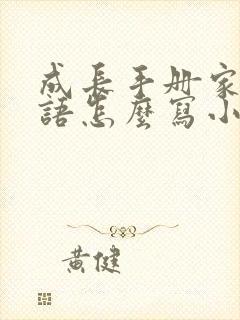 成長手册家
語怎麼寫小
黃健